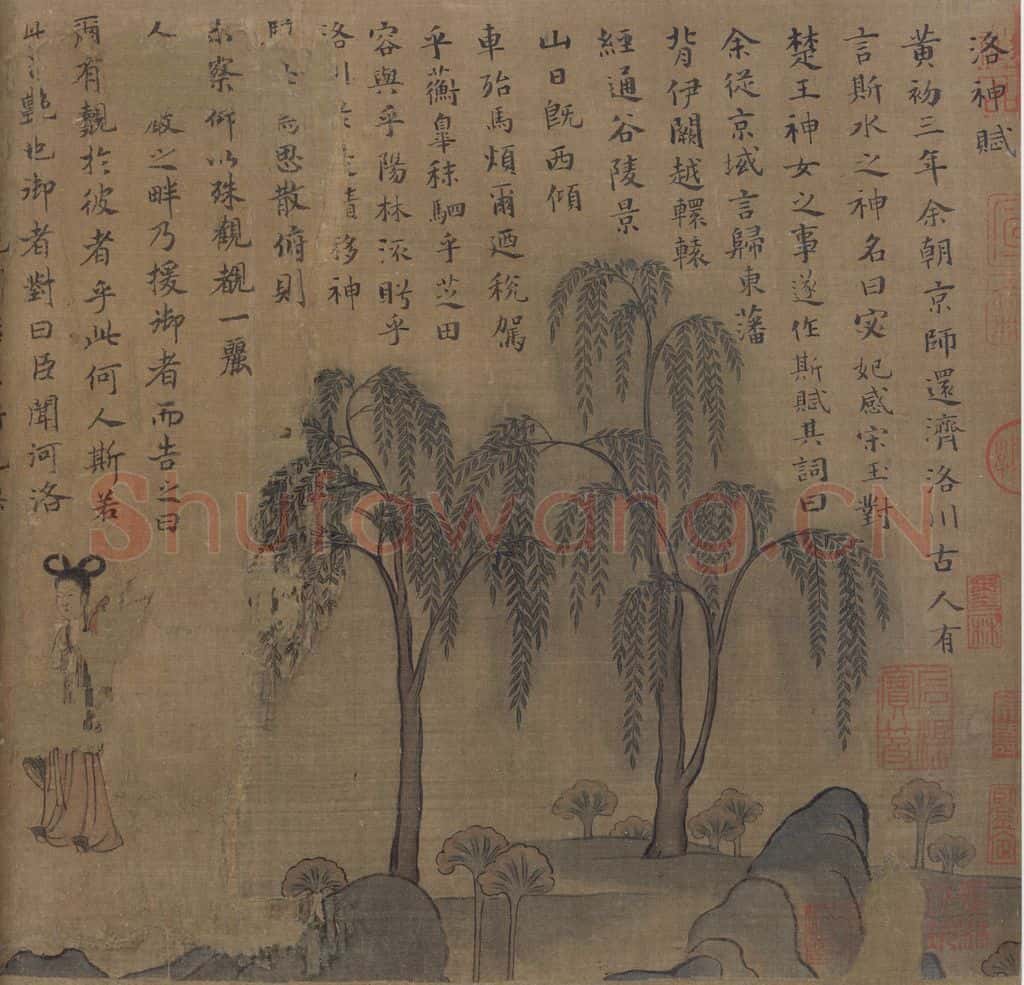 洛神賦
黃初三年余朝京師還濟洛川古人有
言斯水之神名曰宓妃感宋玉對
楚王神女之事遂作斯賦其詞曰
余從京域言歸東藩
背伊闕越轘轅
經通谷陵景
山日既西傾
車殆馬煩爾迺稅駕
乎蘅皐秣駟乎芝田
容與乎陽林流眄乎
洛川移神
思散俯則
未察仰以殊觀覩一麗
人之畔乃援御者而告之曰
爾有覿於彼者乎此何人斯若
此艷也御者對曰臣聞河洛
Shufawang.CN